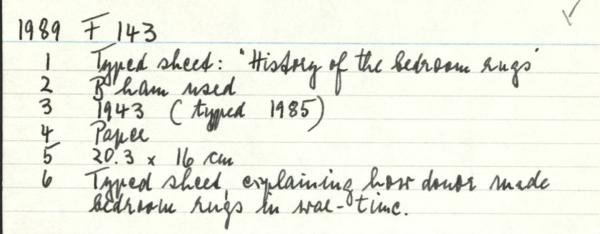 1989 F 143
1 Typed sheet: "History of the bedroom rugs"
2 B'ham used
3 1943 (typed 1985)
4 Paper
5 20.3 x 16 cm
6 Typed sheet, explaining how donor made
bedroom rugs in war-time.